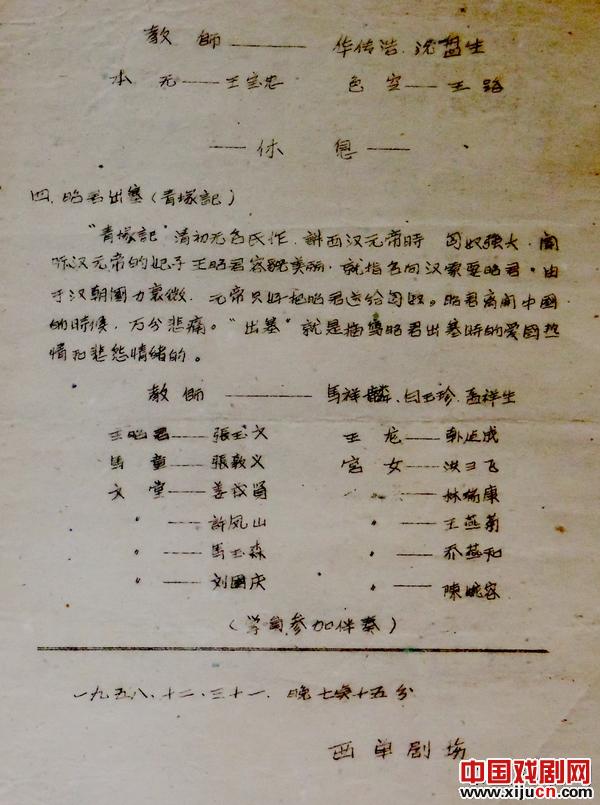 教師——华传浩、沈盘生
本无——王宝忠 色空——王路
——休息——
四、昭君出塞（青塚記）
“青塚記”清初无名氏作，講西汉元帝時 匈奴強大，聞
听汉元帝的妃子王昭君容貌美丽，就指名向汉家要昭君。由
于汉朝國力衰微，元帝只好把昭君送给匈奴。昭君离開中國
的時候，万分悲痛。“出塞”就是描寫昭君出塞時的爱國热
情和悲怨情緒的。
教師——馬祥麟、白玉珍、孟祥生
王昭君——張玉文 王龙——
馬童——張敦义 宮女——洪雪飞
文堂——姜成賢 〃——林瑞康
〃——許凤山 〃——王燕菊
〃——馬玉森 〃——乔燕和
〃——刘國庆 〃——陳婉容
（学員参加伴奏）
一九五八、十二、三十一、晚七点十五分
西单剧場
中国戏剧网
www.xijucn.com